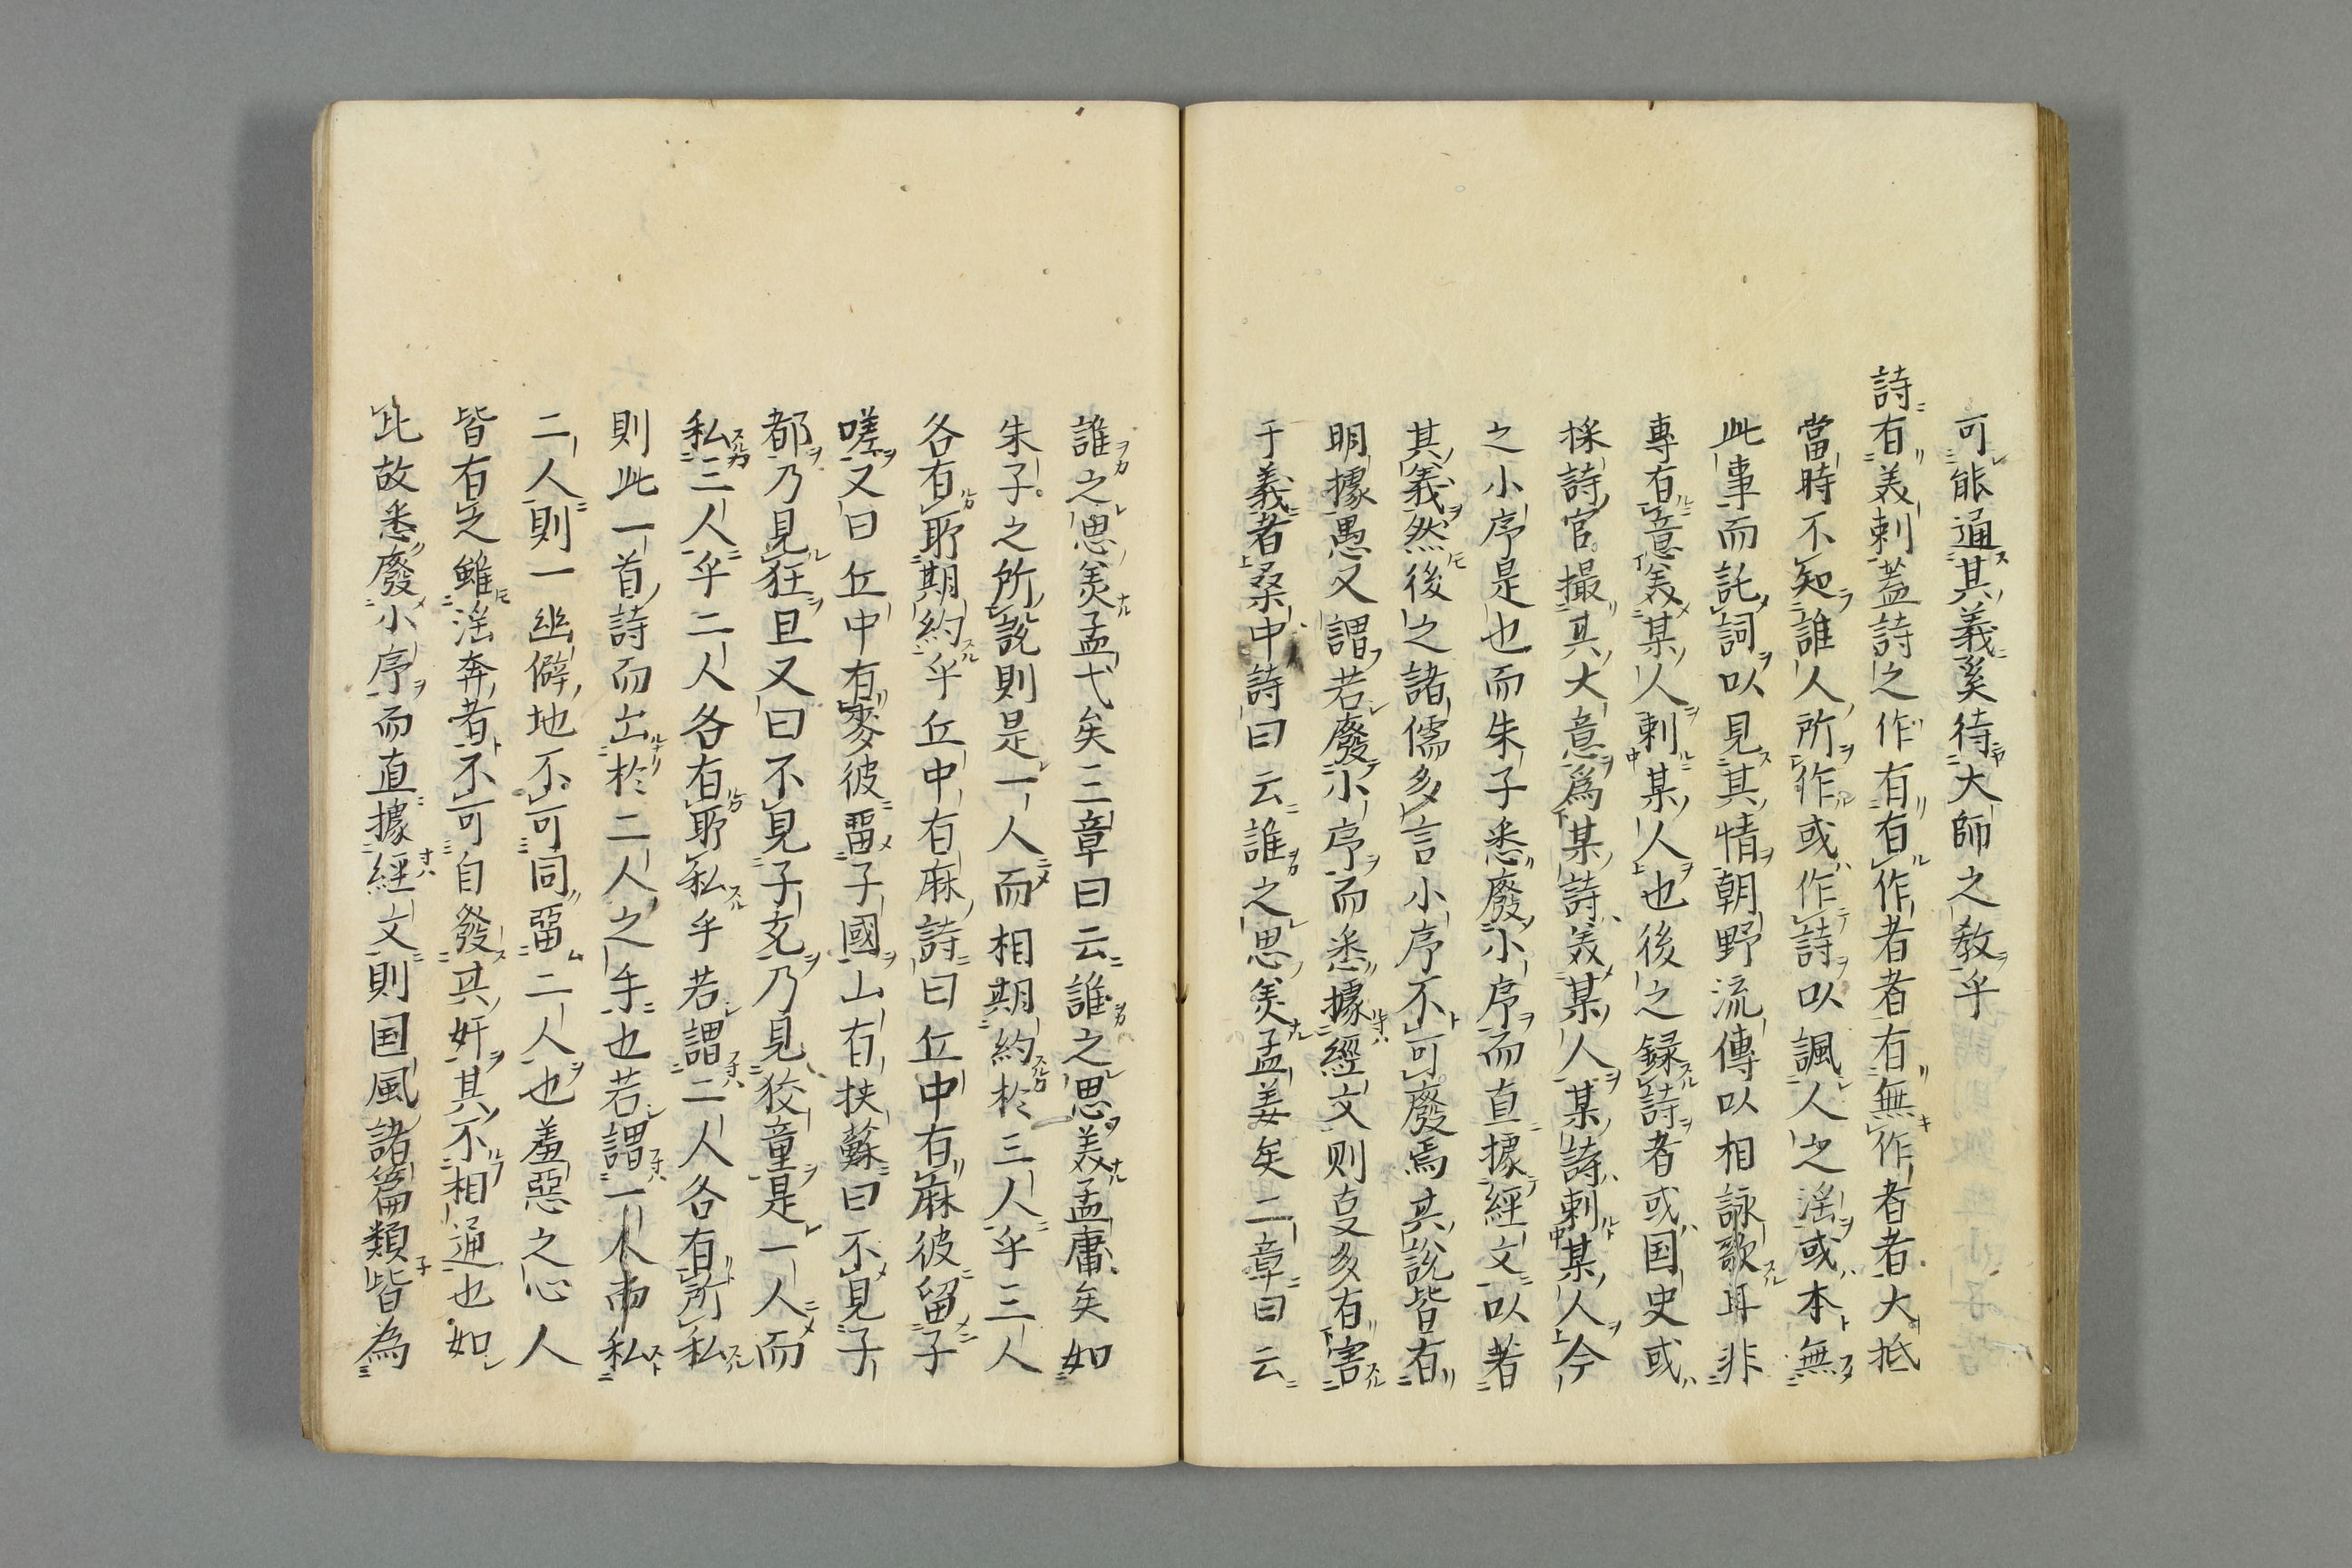 可能通其義奚待大師之教乎
詩有美刺蓋詩之作有有作者者有無作者者大抵
當時不知誰人所作或作詩以諷人之淫或本無
此事而託詞以見其情朝野流傳以相詠歌耳非
專有意美某人刺某人也後之録詩者或国史或
採詩官撮其大意爲某詩美某人某詩刺某人今
之小序是也而朱子悉廢小序而直據經文以著
其義然後之諸儒多言小序不可廢焉其說皆有
明據愚又謂若廢小序而悉據經文則多有害
于義者桑中詩曰云誰之思美孟姜矣二章曰云
誰之思美孟弋矣三章曰云誰之思美孟庸矣如
朱子之所說則是一人而相期約於三人乎三人
各有耶期約乎丘中有麻詩曰丘中有麻彼留子
嗟又曰丘中有麥彼畱子國山有扶蘇曰不見子
都乃見狂且又曰不見子充乃見狡童是一人而
私二人乎二人各有耶私乎若謂二人各有所私
則此一首詩而出於二人之手也若謂一人而私
二人則一幽僻地不可同畱二人也羞惡之心人
皆有之雖淫奔者不可自發其奸其不相通也如
此故悉廢小序而直據經文則国風諸篇類皆為